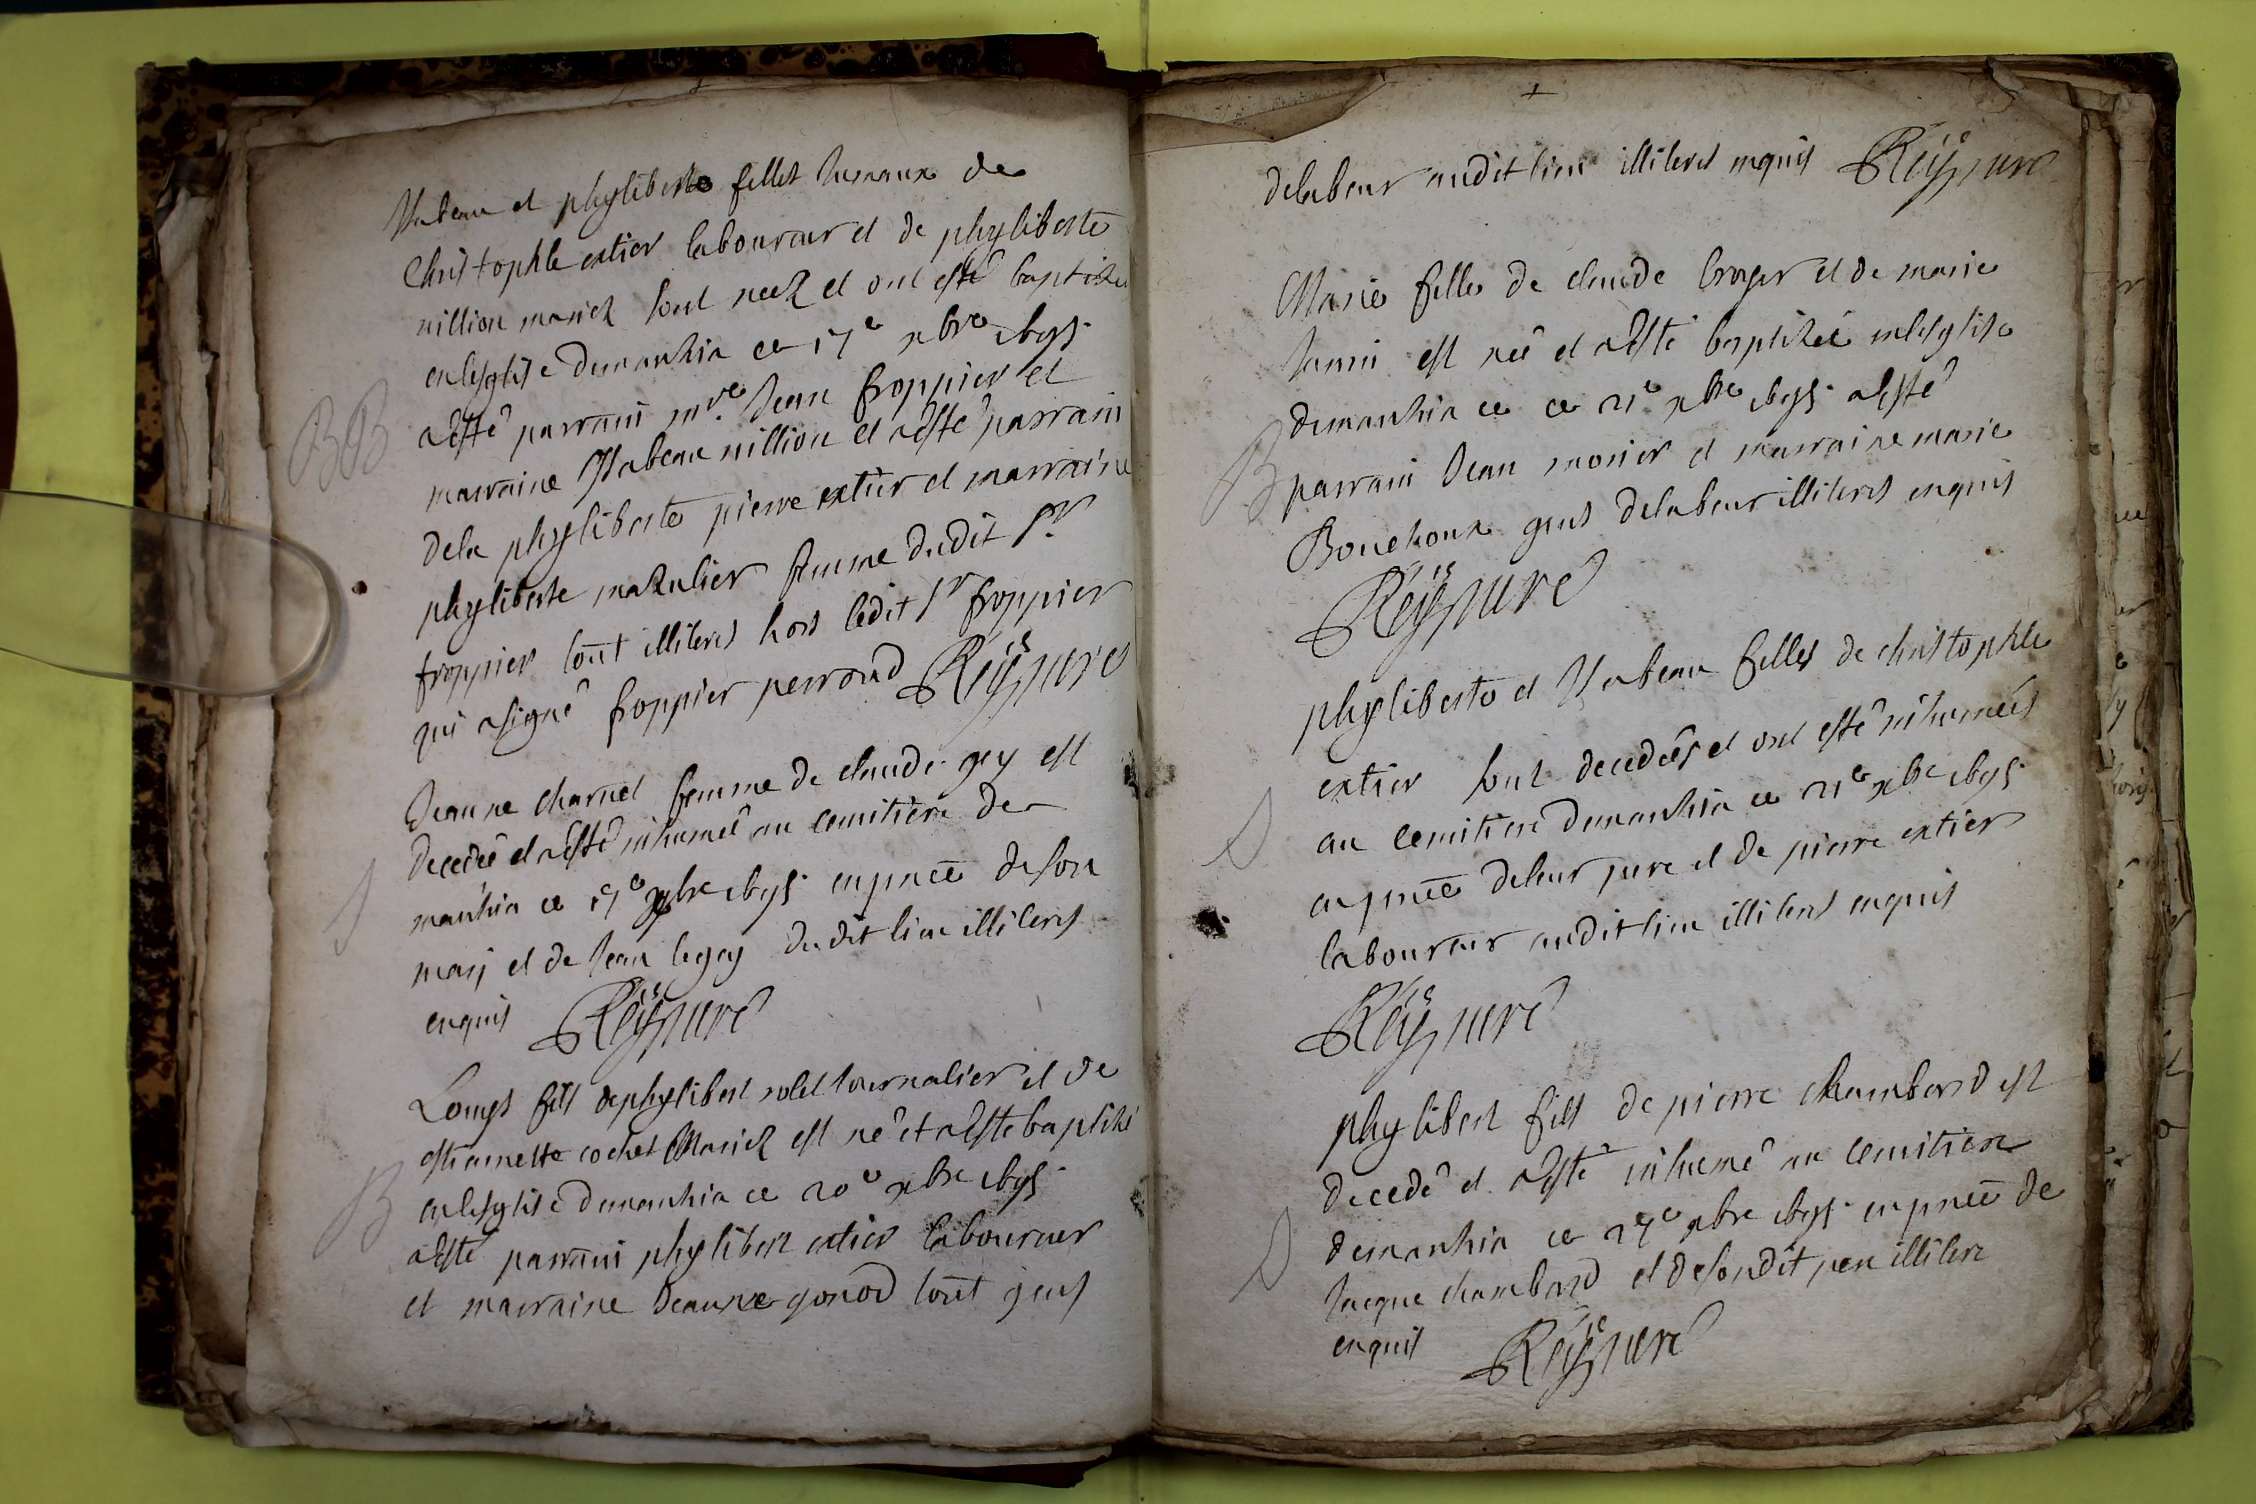 Ysabeau et phyliberte filles Jumaux de
Christophle extier laboureur et de phyliberte
million mariez sont neez et ont esté baptisez
en lesglise demanhia ce 17e xbre
a esté parrain mre Jean froppier et
marraine Ysabeau million et a esté parrain
dela phyliberte pierre extier et marraine
phyliberte mazulier femme dudit sr
froppier tout illiteres hors ledit sr froppier
qui a signé froppier perroud Reÿ
BB
Jeanne charnel femme de claude gey est
decedeé et a esté inhumeé au cemitiere de
manhia ce 19e xbre en pnce de son
mary et de Jean le gey dudit lieu illiteres
enquis Reÿ
Louys fils de phylibert rolet Journalier et de
cochet Mariez est né et a esté baptisé
en lesglise demanhia ce 20e xbre
a esté parrain phylibert extier laboureur
et marraine Jeanne gonod tout gens
B
delabeur audit lieu illiteres enquis Reÿ
Marie fille de claude broyer et de marie
Janin est neé et a esté baptizeé en lesglise
demanhia ce ce 21e xbre a esté
parrain Jean morier et marraine marie
Bouchoux gens delabeur illiteres enquis
Reÿ
B
phyliberte et Ysabeau filles de christophle
extier sont decedeés et ont esté inhumeés
au cemitiere demanhia ce 21e xbre
en pnce deleur pere et de pierre extier
laboureur audit lieu illiteres enquis
Reÿ
phylibert fils de pierre chambard est
decedé et a esté inhumé au cemitiere
demanhia ce 27e xbre en pnce de
Jacque chambard et desondit pere illitere
enquis Reÿ